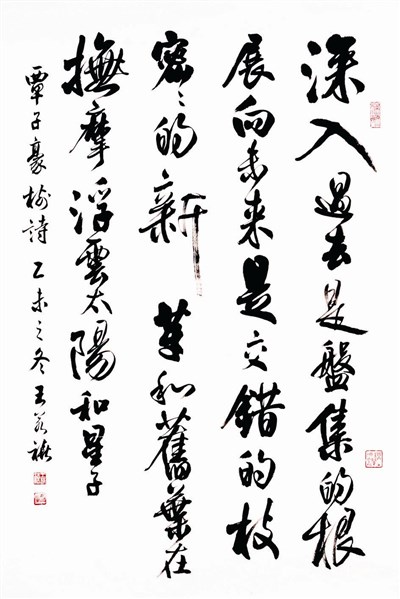 深入過去是盤集的根
展向未来是交錯的枝
密〻的新芽和舊葉在
撫摩浮雲太陽和星子
覃子豪樹詩 乙未之冬 王